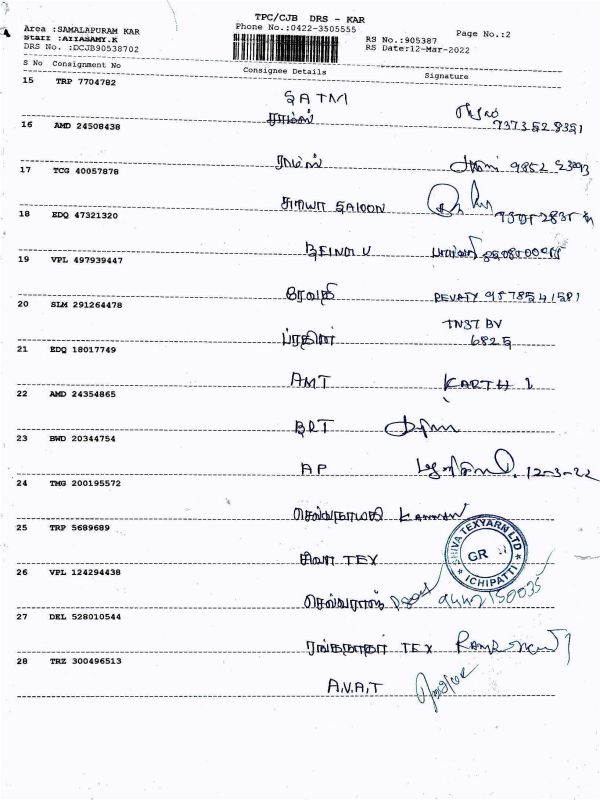 TPC/CJB DRS - KAR
Area :SAMALAPURAM KAR
Phone No.:0422-3505555
Page No.:2
Staff :AYYASAMY.K
RS No.:905387
DRS No. :DCJB90538702
RS Date:12-Mar-2022
S No Consignment No Consignee Details Signature
15 TRP 7704782
SATM
ராம்ஸ் 7373528351
16 AMD 24508438
ராம்ஸ் 9852
17 TCG 40057878
சூர்யா SALOON
18 EDQ 47321320
19 VPL 497939447
ரேவதி REVATY 9578541581
20 SLM 291264478
TN37 BV
6825
21 EDQ 18017749
AMT KARTHI
22 AMD 24354865
BRT
23 BWD 20344754
AP 12-3-22
24 TMG 200195572
KANNAN
25 TRP 5689689
சிவா TEX
SHIVA TEXYARN LTD
GR
ICHIPATTI
26 VPL 124294438
செல்வராஜ் 9442150035
27 DEL 528010544
TEX
28 TRZ 300496513
A.V.A.T